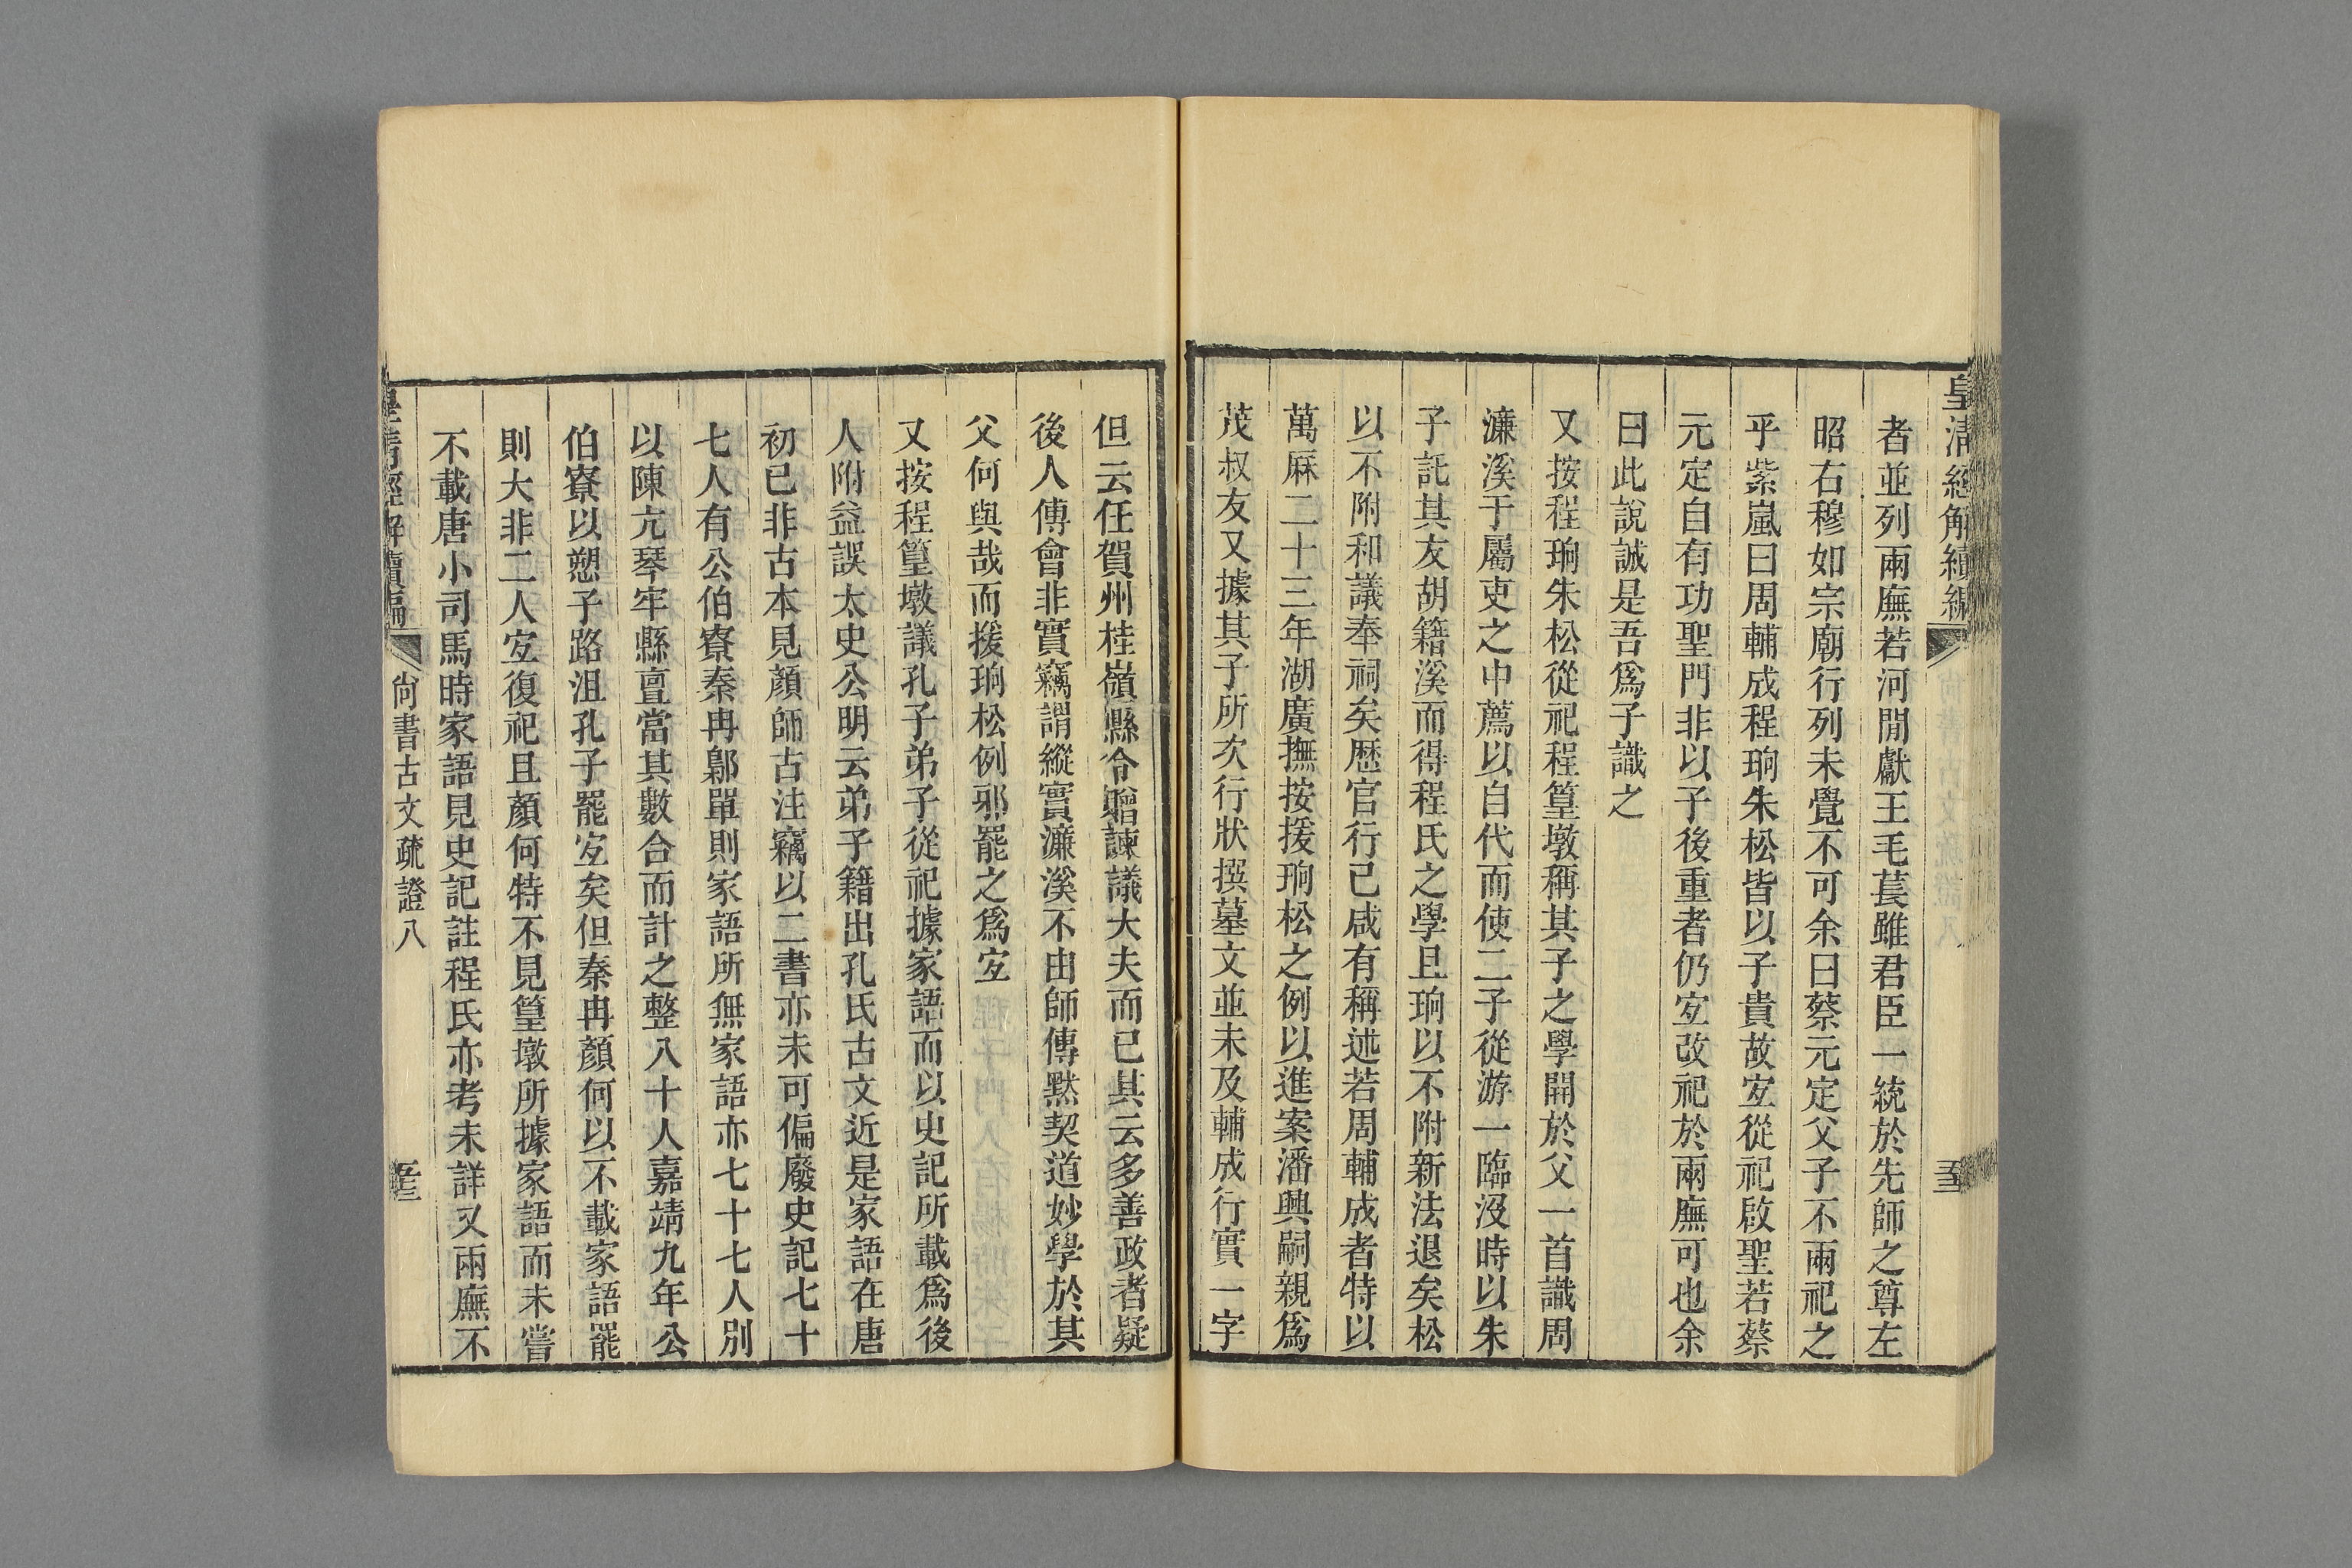 皇清經解續編
者並列兩廡若河閒獻王毛萇雖君臣一統於先師之尊左
昭右穆如宗廟行列未覺不可余曰蔡元定父子不兩祀之
乎紫嵐曰周輔成程珦朱松皆以子貴故宐從祀啟聖若蔡
元定自有功聖門非以子後重者仍宐改祀於兩廡可也余
曰此說誠是吾爲子識之
又按程珦朱松從祀程篁墩稱其子之學開於父一首識周
濂溪于屬吏之中薦以自代而使二子從游一臨沒時以朱
子託其友胡籍溪而得程氏之學且珦以不附新法退矣松
以不附和議奉祠矣歴官行已咸有稱述若周輔成者特以
萬厤二十三年湖廣撫按援珦松之例以進案潘興嗣親爲
茂叔友又據其子所次行狀撰墓文並未及輔成行實一字
但云任賀州桂嶺縣令贈諫議大夫而已其云多善政者疑
後人傅會非實竊謂縱實濂溪不由師傳黙契道妙學於其
父何與哉而援珦松例邪罷之爲宐
又按程篁墩議孔子弟子從祀據家語而以史記所載爲後
人附益誤太史公明云弟子籍出孔氏古文近是家語在唐
初已非古本見顏師古注竊以二書亦未可偏廢史記七十
七人有公伯寮秦冉鄡單則家語所無家語亦七十七人別
以陳亢琴牢縣亶當其數合而計之整八十人嘉靖九年公
伯寮以愬子路沮孔子罷宐矣但秦冉顏何以不載家語罷
則大非二人宐復祀且顏何特不見篁墩所據家語而未嘗
不載唐小司馬時家語見史記註程氏亦考未詳又兩廡不
皇清經解續編
尙書古文疏證八